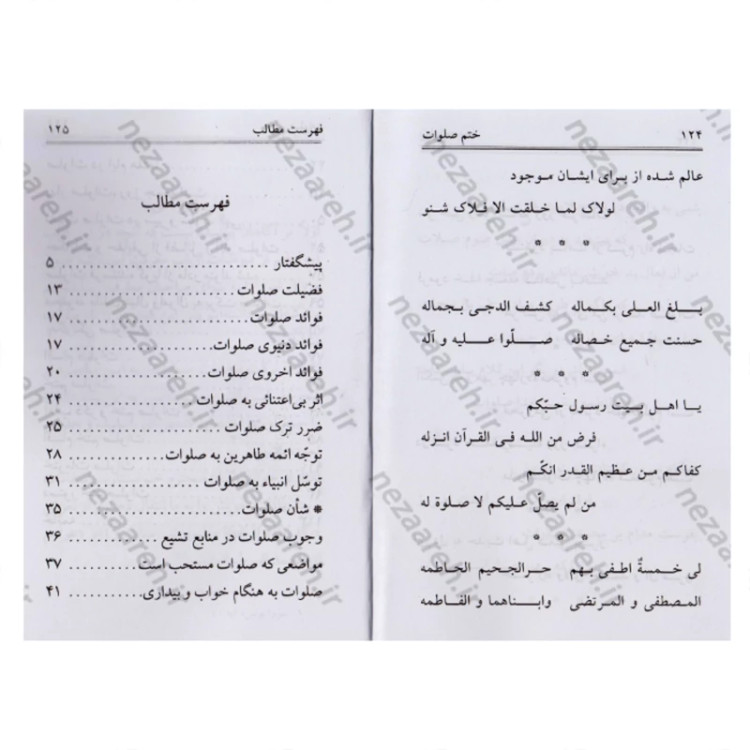 ۱۲۴ ختم صلوات
عالم شده از برای ایشان موجود
لولاک لما خلقت الا فلاک شنو
* * *
بلغ العلی بکماله کشف الدجی بجماله
حسنت جمیع خصاله صلّوا علیه و آله
* * *
یا اهل بیت رسول حبّکم
فرض من الله فی القرآن انزله
کفاکم من عظیم القدر انکّم
من لم یصلّ علیکم لا صلوة له
* * *
لی خمسةٌ اطفی بهم حرالجحیم الحاطمه
المصطفی و المرتضی وابناهما و الفاطمه
فهرست مطالب ۱۲۵
فهرست مطالب
پیشگفتار ۵
فضیلت صلوات ۱۳
فوائد صلوات ۱۷
فوائد دنیوی صلوات ۱۷
فوائد اخروی صلوات ۲۰
اثر بی‌اعتنائی به صلوات ۲۴
ضرر ترک صلوات ۲۵
توجّه ائمه طاهرین به صلوات ۲۸
توسّل انبیاء به صلوات ۳۱
* شأن صلوات ۳۵
وجوب صلوات در منابع تشیع ۳۶
مواضعی که صلوات مستحب است ۳۷
صلوات به هنگام خواب و بیداری ۴۱
nezaareh.ir